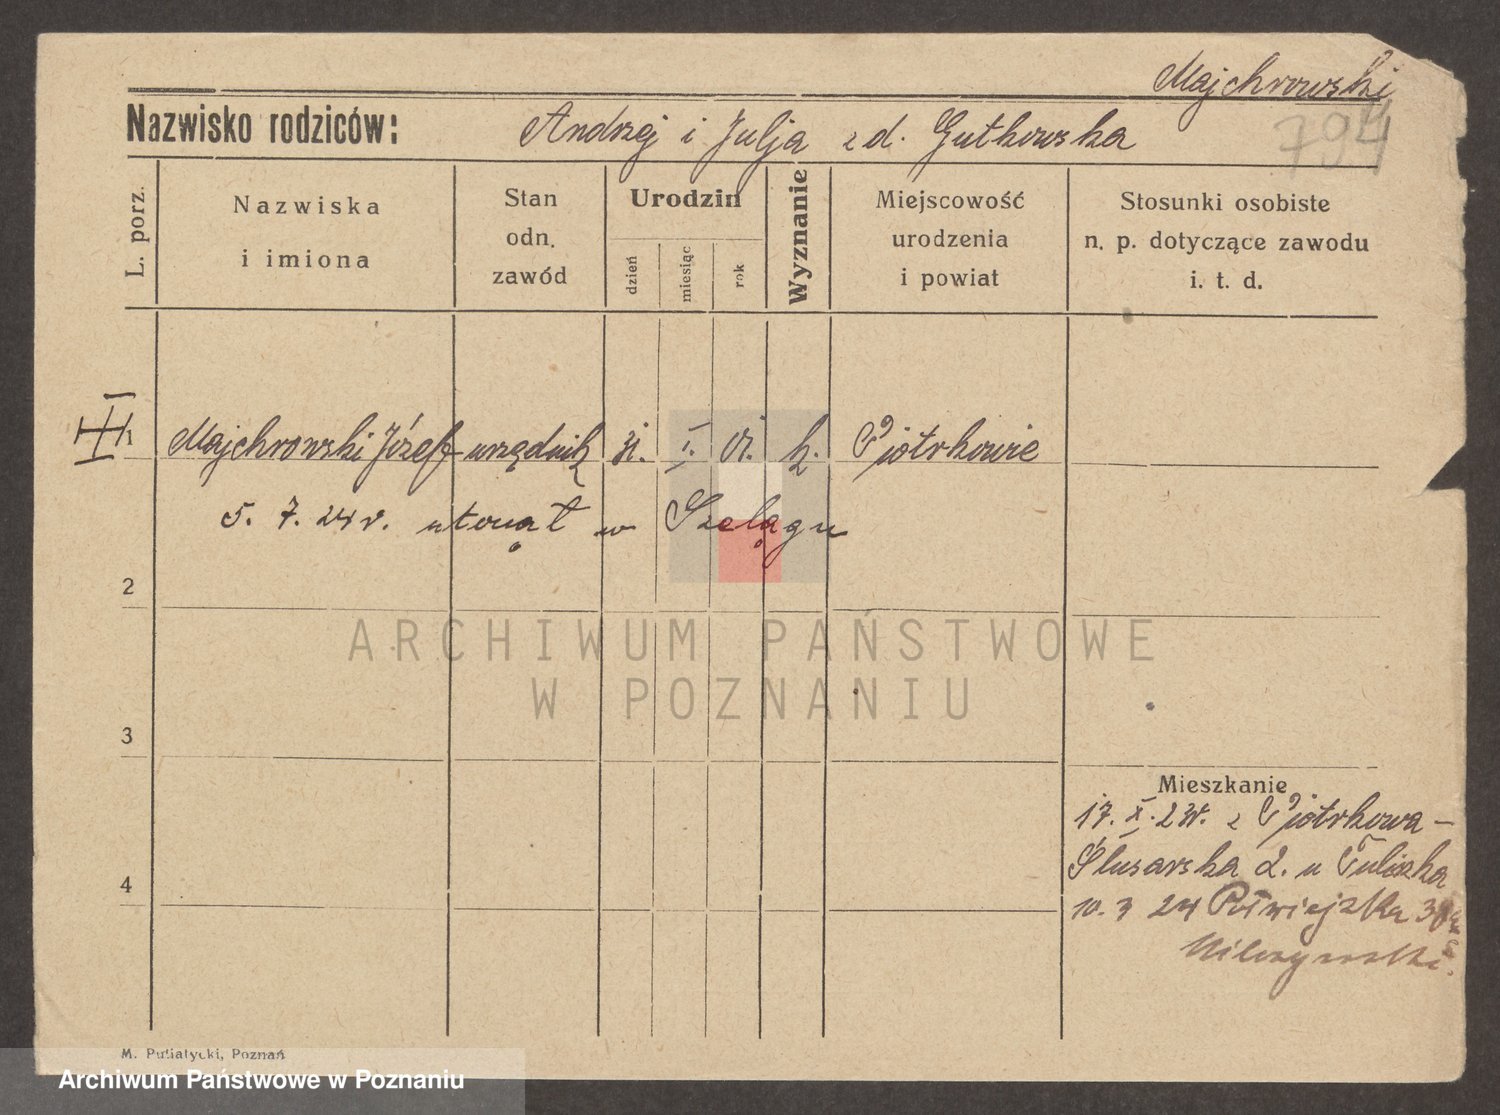 Majchrowski
794
Nazwisko rodziców: Andrzej i Julja z d. Gutkowska
L. porz. Nazwiska i imiona Stan odn. zawód Urodzin dzień miesiąc rok Wyznanie Miejscowość urodzenia i powiat Stosunki osobiste n. p. dotyczące zawodu i. t. d.
1 Majchrowski Józef urzędnik 31. I. 01. k. Piotrkowie
5. 7. 24 r. utonął w Szelągu
2
ARCHIWUM PAŃSTWOWE
W POZNANIU
3
Mieszkanie
17. X. 23r. z Piotrkowa –
Ślusarska 2. u
4
10. 3 24 Półwiejska
M. Putiatycki, Poznań
Archiwum Państwowe w Poznaniu